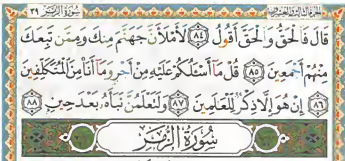 الجزء الثالث والعشرون سُورَةُ الزُّمَرِ ٣٩
قَالَ فَٱلْحَقُّ وَٱلْحَقَّ أَقُولُ ٨٤ لَأَمْلَأَنَّ جَهَنَّمَ مِنكَ وَمِمَّن تَبِعَكَ
مِنْهُمْ أَجْمَعِينَ ٨٥ قُلْ مَآ أَسْـَٔلُكُمْ عَلَيْهِ مِنْ أَجْرٍ وَمَآ أَنَا۠ مِنَ ٱلْمُتَكَلِّفِينَ
٨٦ إِنْ هُوَ إِلَّا ذِكْرٌ لِّلْعَٰلَمِينَ ٨٧ وَلَتَعْلَمُنَّ نَبَأَهُۥ بَعْدَ حِينٍۭ ٨٨
سُورَةُ الزُّمَرِ